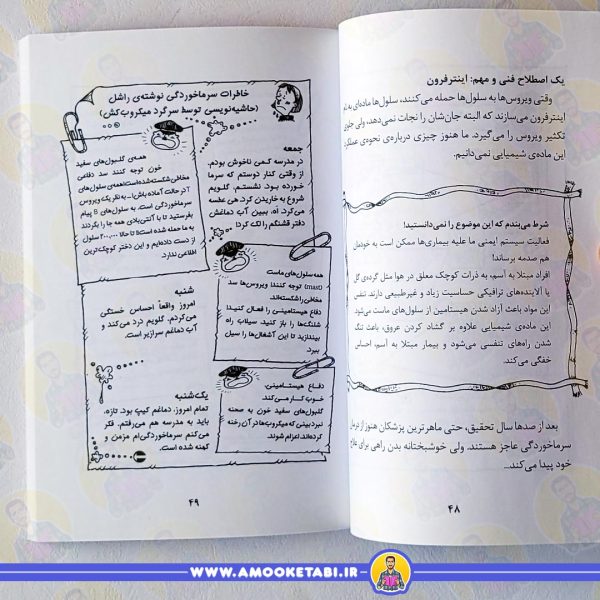 یک اصطلاح فنی و مهم: اینترفرون
وقتی ویروس‌ها به سلول‌ها حمله می‌کنند، سلول‌ها ماده‌ای به
اینترفرون می‌سازند که البته جان‌شان را نجات نمی‌دهد، ولی جلوی
تکثیر ویروس را می‌گیرد. ما هنوز چیزی درباره‌ی نحوه‌ی عملکرد
این ماده‌ی شیمیایی نمی‌دانیم.
شرط می‌بندم که این موضوع را نمی‌دانستید!
فعالیت سیستم ایمنی ما علیه بیماری‌ها ممکن است به خودمان
هم صدمه برساند!
افراد مبتلا به آسم، به ذرات کوچک معلق در هوا مثل گرده‌ی گل
یا آلاینده‌های ترافیکی حساسیت زیاد و غیرطبیعی دارند. تنفس
این مواد باعث آزاد شدن هیستامین از سلول‌های ماست می‌شود
این ماده‌ی شیمیایی علاوه بر گشاد کردن عروق، باعث تنگ
شدن راه‌های تنفسی می‌شود و بیمار مبتلا به آسم، احساس
خفگی می‌کند.
بعد از صدها سال تحقیق، حتی ماهرترین پزشکان هنوز از درمان
سرماخوردگی عاجز هستند. ولی خوشبختانه بدن راهی برای علاج
خود پیدا می‌کند...
۴۸
خاطرات سرماخوردگی نوشته‌ی راشل
(حاشیه‌نویسی توسط سرگرد میکروب‌کش)
جمعه
در مدرسه کمی ناخوش بودم.
از وقتی کنار دوستم که سرما
خورده بود، نشستم، گلویم
شروع به خاریدن کرد. هی عطسه
می‌کرد. آه، ببین آب دماغش
دفتر قشنگم را لک کرد!
همه‌ی گلبول‌های سفید
خون توجه کنند سد دفاعی
مخاطی شکسته شده است! همه‌ی سلول‌های
T در حالت آماده باش! ــ به نظر یک ویروس
سرماخوردگی است. به سلول‌های B پیام
بفرستید تا با آنتی‌بادی همه جا را بگردند
به ما حمله شده است! تا حالا ۲۰۰,۰۰۰ سلول
از دست داده‌ایم و این دختر کوچک‌ترین
اطلاعی ندارد.
همه سلول‌های ماست
(mast) توجه کنند! ویروس‌ها سد
مخاطی را شکسته‌اند.
دفاع هیستامینی را فعال کنید!
شلنگ‌ها را باز کنید. سیلاب راه
بیندازید تا این آشغال‌ها را سیل
ببرد.
شنبه
امروز واقعاً احساس خستگی
می‌کردم. گلویم درد می‌کند و
آب دماغم سرازیر است.
دفاع هیستامینی،
خوب کار می‌کند.
گلبول‌های سفید خون به صحنه
نبرد بینی که میکروب‌ها در آن رخنه
کرده‌اند، اعزام شوند.
یک‌شنبه
تمام امروز، دماغم کیپ بود. تازه،
باید به مدرسه هم می‌رفتم. فکر
می‌کنم سرماخوردگی‌ام مزمن و
کهنه شده است.
۴۹
WWW.AMOOKETABI.IR